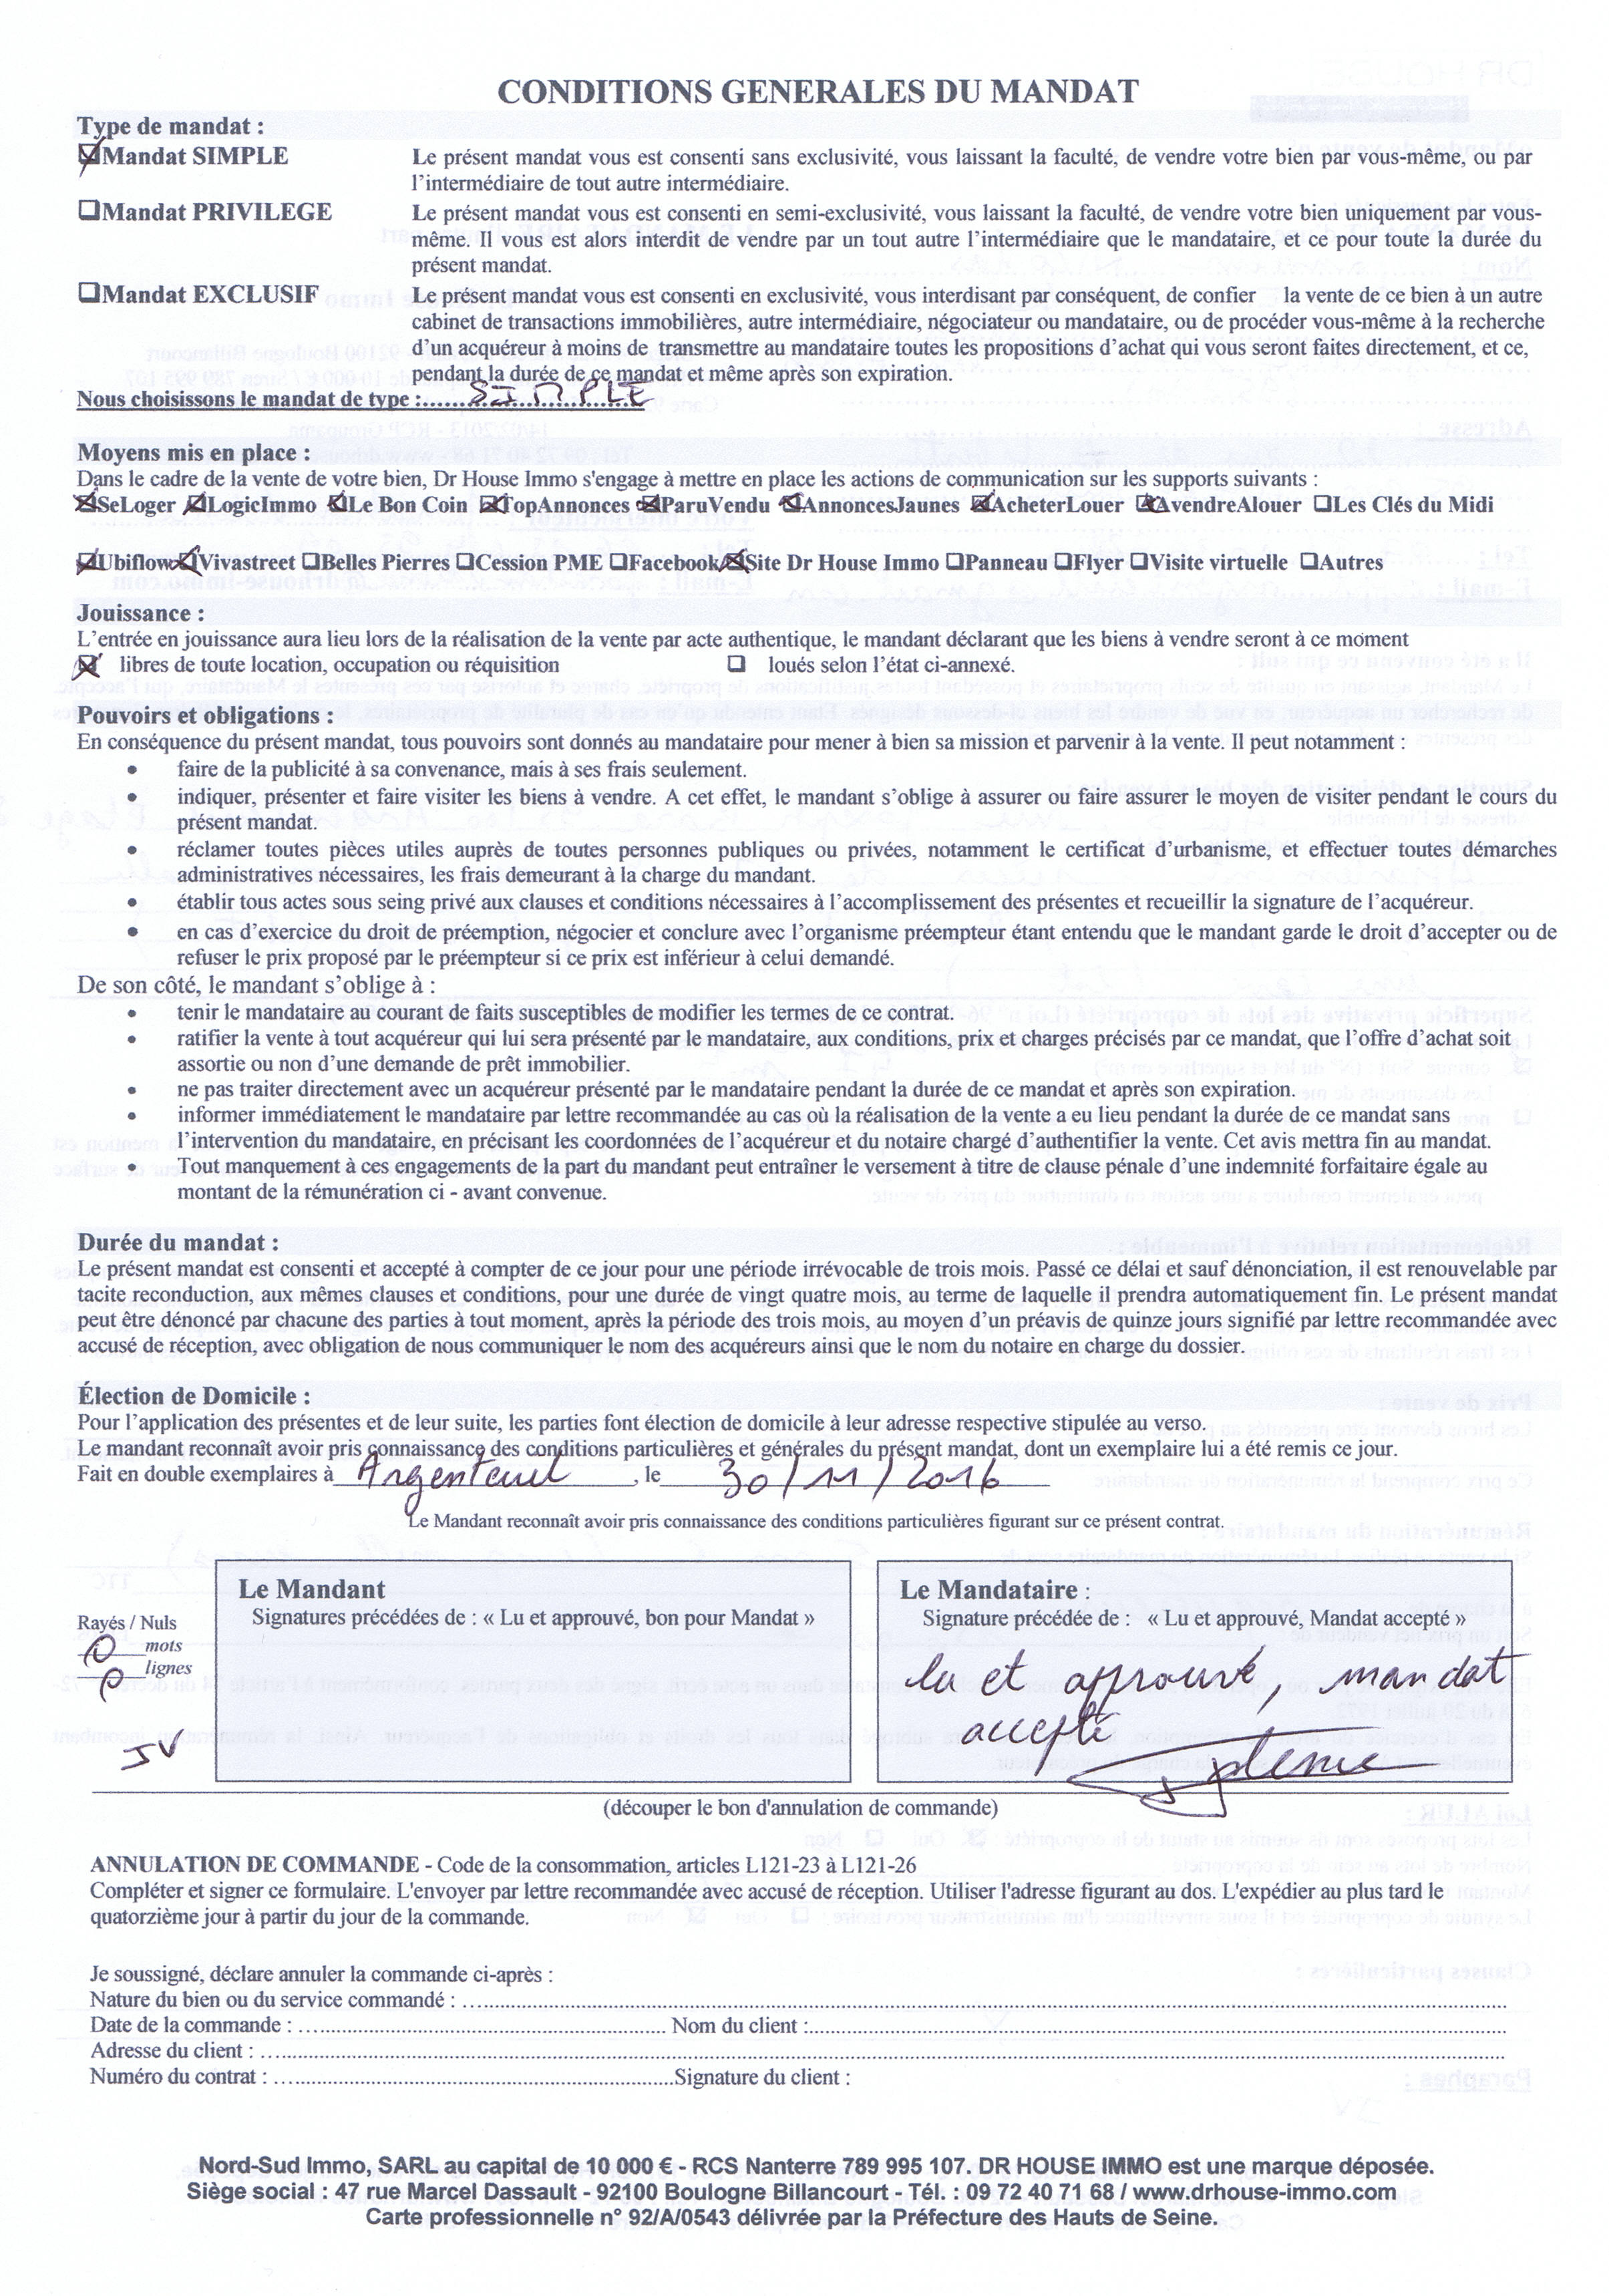 CONDITIONS GENERALES DU MANDAT
Type de mandat :
Mandat SIMPLE Le présent mandat vous est consenti sans exclusivité, vous laissant la faculté, de vendre votre bien par vous-même, ou par
l’intermédiaire de tout autre intermédiaire.
Mandat PRIVILEGE Le présent mandat vous est consenti en semi-exclusivité, vous laissant la faculté, de vendre votre bien uniquement par vous-
même. Il vous est alors interdit de vendre par un tout autre l’intermédiaire que le mandataire, et ce pour toute la durée du
présent mandat.
Mandat EXCLUSIF Le présent mandat vous est consenti en exclusivité, vous interdisant par conséquent, de confier la vente de ce bien à un autre
cabinet de transactions immobilières, autre intermédiaire, négociateur ou mandataire, ou de procéder vous-même à la recherche
d’un acquéreur à moins de transmettre au mandataire toutes les propositions d’achat qui vous seront faites directement, et ce,
pendant la durée de ce mandat et même après son expiration.
Nous choisissons le mandat de type : SIMPLE
Moyens mis en place :
Dans le cadre de la vente de votre bien, Dr House Immo s'engage à mettre en place les actions de communication sur les supports suivants :
SeLoger LogicImmo Le Bon Coin TopAnnonces ParuVendu AnnoncesJaunes AcheterLouer AvendreAlouer Les Clés du Midi
Ubiflow Vivastreet Belles Pierres Cession PME Facebook Site Dr House Immo Panneau Flyer Visite virtuelle Autres
Jouissance :
L’entrée en jouissance aura lieu lors de la réalisation de la vente par acte authentique, le mandant déclarant que les biens à vendre seront à ce moment
libres de toute location, occupation ou réquisition loués selon l’état ci-annexé.
Pouvoirs et obligations :
En conséquence du présent mandat, tous pouvoirs sont donnés au mandataire pour mener à bien sa mission et parvenir à la vente. Il peut notamment :
• faire de la publicité à sa convenance, mais à ses frais seulement.
• indiquer, présenter et faire visiter les biens à vendre. A cet effet, le mandant s’oblige à assurer ou faire assurer le moyen de visiter pendant le cours du
présent mandat.
• réclamer toutes pièces utiles auprès de toutes personnes publiques ou privées, notamment le certificat d’urbanisme, et effectuer toutes démarches
administratives nécessaires, les frais demeurant à la charge du mandant.
• établir tous actes sous seing privé aux clauses et conditions nécessaires à l’accomplissement des présentes et recueillir la signature de l’acquéreur.
• en cas d’exercice du droit de préemption, négocier et conclure avec l’organisme préempteur étant entendu que le mandant garde le droit d’accepter ou de
refuser le prix proposé par le préempteur si ce prix est inférieur à celui demandé.
De son côté, le mandant s’oblige à :
• tenir le mandataire au courant de faits susceptibles de modifier les termes de ce contrat.
• ratifier la vente à tout acquéreur qui lui sera présenté par le mandataire, aux conditions, prix et charges précisés par ce mandat, que l’offre d’achat soit
assortie ou non d’une demande de prêt immobilier.
• ne pas traiter directement avec un acquéreur présenté par le mandataire pendant la durée de ce mandat et après son expiration.
• informer immédiatement le mandataire par lettre recommandée au cas où la réalisation de la vente a eu lieu pendant la durée de ce mandat sans
l’intervention du mandataire, en précisant les coordonnées de l’acquéreur et du notaire chargé d’authentifier la vente. Cet avis mettra fin au mandat.
• Tout manquement à ces engagements de la part du mandant peut entraîner le versement à titre de clause pénale d’une indemnité forfaitaire égale au
montant de la rémunération ci - avant convenue.
Durée du mandat :
Le présent mandat est consenti et accepté à compter de ce jour pour une période irrévocable de trois mois. Passé ce délai et sauf dénonciation, il est renouvelable par
tacite reconduction, aux mêmes clauses et conditions, pour une durée de vingt quatre mois, au terme de laquelle il prendra automatiquement fin. Le présent mandat
peut être dénoncé par chacune des parties à tout moment, après la période des trois mois, au moyen d’un préavis de quinze jours signifié par lettre recommandée avec
accusé de réception, avec obligation de nous communiquer le nom des acquéreurs ainsi que le nom du notaire en charge du dossier.
Élection de Domicile :
Pour l’application des présentes et de leur suite, les parties font élection de domicile à leur adresse respective stipulée au verso.
Le mandant reconnaît avoir pris connaissance des conditions particulières et générales du présent mandat, dont un exemplaire lui a été remis ce jour.
Fait en double exemplaires à Argenteuil, le 30/11/2016
Le Mandant reconnaît avoir pris connaissance des conditions particulières figurant sur ce présent contrat.
Le Mandant
Signatures précédées de : « Lu et approuvé, bon pour Mandat »
Le Mandataire :
Signature précédée de : « Lu et approuvé, Mandat accepté »
lu et approuvé, mandat
accepté
Rayés / Nuls
0 mots
0 lignes
JV
(découper le bon d'annulation de commande)
ANNULATION DE COMMANDE - Code de la consommation, articles L121-23 à L121-26
Compléter et signer ce formulaire. L'envoyer par lettre recommandée avec accusé de réception. Utiliser l'adresse figurant au dos. L'expédier au plus tard le
quatorzième jour à partir du jour de la commande.
Je soussigné, déclare annuler la commande ci-après :
Nature du bien ou du service commandé :
Date de la commande : Nom du client :
Adresse du client :
Numéro du contrat : Signature du client :
Nord-Sud Immo, SARL au capital de 10 000 € - RCS Nanterre 789 995 107. DR HOUSE IMMO est une marque déposée.
Siège social : 47 rue Marcel Dassault - 92100 Boulogne Billancourt - Tél. : 09 72 40 71 68 / www.drhouse-immo.com
Carte professionnelle n° 92/A/0543 délivrée par la Préfecture des Hauts de Seine.